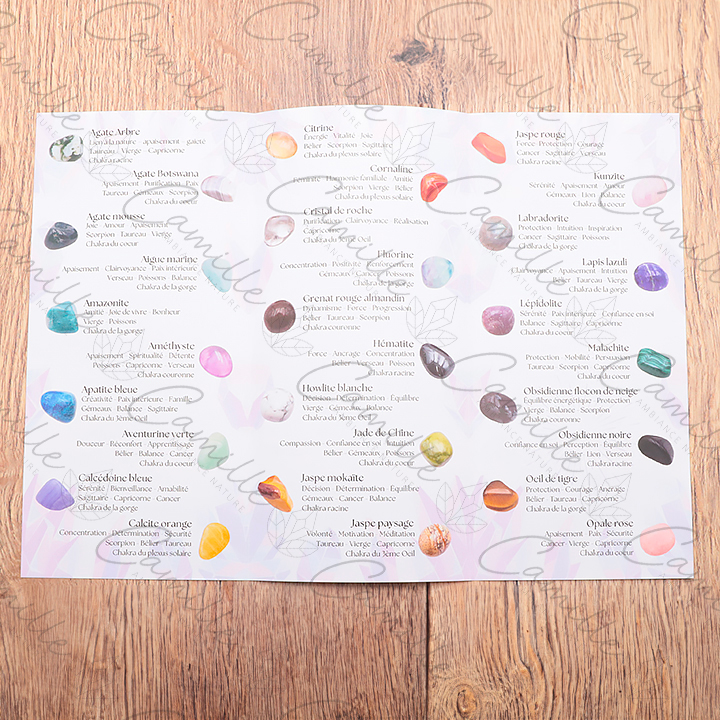 Agate Arbre
Lien à la nature · apaisement · gaieté
Taureau · Vierge · Capricorne
Chakra racine
Agate Botswana
Apaisement · Purification · Paix
Taureau · Vierge
Agate mousse
Joie · Amour · Apaisement
Scorpion · Taureau · Vierge
Chakra du coeur
Aigue marine
Apaisement · Clairvoyance · Paix intérieure
Verseau · Poissons · Balance
Chakra de la gorge
Amazonite
Amitié · Joie de vivre · Bonheur
Vierge · Poissons
Chakra de la gorge
Améthyste
Apaisement · Spiritualité · Détente
Poissons · Capricorne · Verseau
Chakra couronne
Apatite bleue
Créativité · Paix intérieure · Famille
Gémeaux · Balance · Sagittaire
Chakra de la gorge
Aventurine verte
Douceur · Réconfort · Apprentissage
Bélier · Balance · Cancer
Chakra du coeur
Calcédoine bleue
Sérénité · Bienveillance · Amabilité
Sagittaire · Capricorne · Cancer
Chakra de la gorge
Calcite orange
Concentration · Détermination · Sécurité
Scorpion · Bélier · Taureau
Chakra du plexus solaire
Citrine
Énergie · Vitalité · Joie
Bélier · Scorpion · Sagittaire
Chakra du plexus solaire
Cornaline
Féminité · Harmonie familiale · Amitié
Scorpion · Vierge · Bélier
Chakra du plexus solaire
Cristal de roche
Purification · Clairvoyance · Réalisation
Capricorne
Chakra du 3ème Oeil
Fluorine
Concentration · Positivité · Renforcement
Gémeaux · Verseau · Poissons
Chakra de la gorge
Grenat rouge almandin
Dynamisme · Force · Progression
Bélier · Taureau · Scorpion
Chakra couronne
Hématite
Force · Ancrage · Concentration
Bélier · Taureau · Poissons
Chakra racine
Howlite blanche
Décision · Détermination · Équilibre
Vierge · Gémeaux · Balance
Chakra du 3ème Oeil
Jade de Chine
Compassion · Confiance en soi · Intuition
Bélier · Taureau · Balance
Chakra du coeur
Jaspe mokaïte
Décision · Détermination · Équilibre
Gémeaux · Cancer · Balance
Chakra racine
Jaspe paysage
Volonté · Motivation · Méditation
Taureau · Vierge · Capricorne
Chakra du 3ème Oeil
Jaspe rouge
Force · Protection · Courage
Cancer · Sagittaire · Verseau
Chakra racine
Kunzite
Sérénité · Apaisement · Amour
Gémeaux · Lion · Balance
Chakra du coeur
Labradorite
Protection · Intuition · Inspiration
Cancer · Sagittaire · Poissons
Chakra de la gorge
Lapis lazuli
Clairvoyance · Apaisement · Intuition
Bélier · Taureau · Poissons · Vierge
Chakra de la gorge
Lépidolite
Sérénité · Paix intérieure · Confiance en soi
Balance · Sagittaire · Capricorne
Chakra du 3ème Oeil
Malachite
Protection · Mobilité · Persuasion
Taureau · Scorpion · Balance
Chakra du coeur
Obsidienne flocon de neige
Équilibre énergétique · Protection
Vierge · Balance · Scorpion
Chakra couronne
Obsidienne noire
Confiance en soi · Perception · Équilibre
Bélier · Lion · Verseau
Chakra racine
Oeil de tigre
Protection · Courage · Ancrage
Bélier · Taureau
Chakra de la gorge
Opale rose
Apaisement · Paix · Sécurité
Cancer · Vierge · Capricorne
Chakra du coeur
Camille
AMBIANCE NATURE